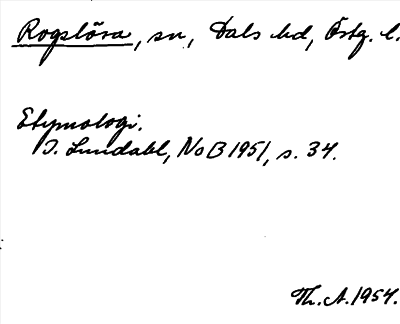 Rogslösa, sn, Dals hd, Östg. l.
Etymologi.
I. Lundahl, NoB 1951, s. 34.
Th. A. 1954.